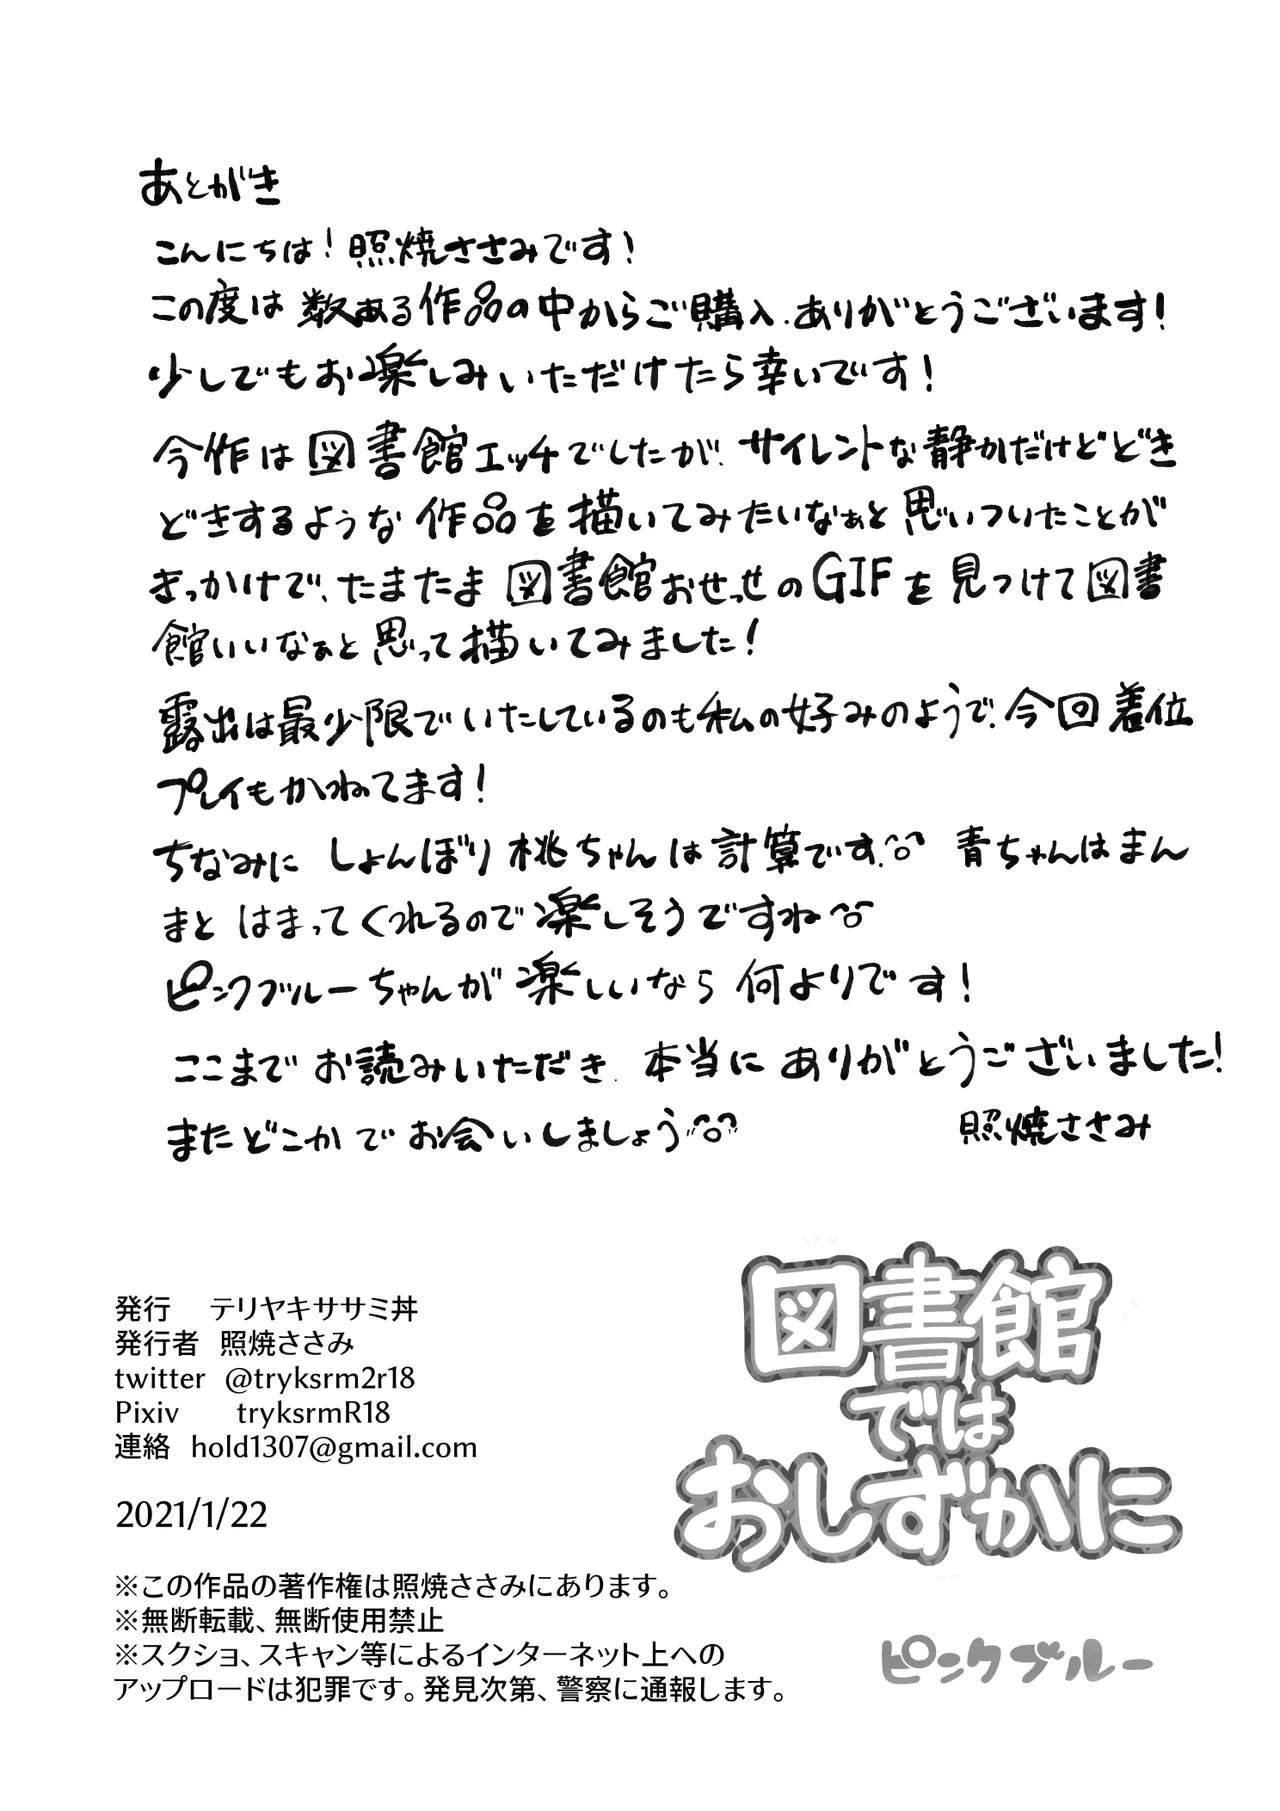 あとがき
こんにちは!照焼ささみです!
この度は数ある作品の中からご購入、ありがとうございます!
少しでもお楽しみいただけたら幸いです!
今作は図書館エッチでしたが、サイレントな静かだけどどき
どきするような作品を描いてみたいなぁと思いついたことが
きっかけで、たまたま図書館おせっせのGIFを見つけて図書
館いいなぁと思って描いてみました!
露出は最少限でいたしているのも私の好みのようで、今回着位
プレイもかねてます!
ちなみに しょんぼり桃ちゃんは計算です。 青ちゃんはまん
まと はまってくれるので楽しそうですね
ピンクブルーちゃんが楽しいなら何よりです!
ここまでお読みいただき、本当にありがとうございました!
またどこかでお会いしましょう
照焼ささみ
図書館
では
おしずかに
ピンクブルー
発行 テリヤキササミ丼
発行者 照焼ささみ
twitter @tryksrm2r18
Pixiv tryksrmR18
連絡 hold1307@gmail.com
2021/1/22
※この作品の著作権は照焼ささみにあります。
※無断転載、無断使用禁止
※スクショ、スキャン等によるインターネット上への
アップロードは犯罪です。発見次第、警察に通報します。